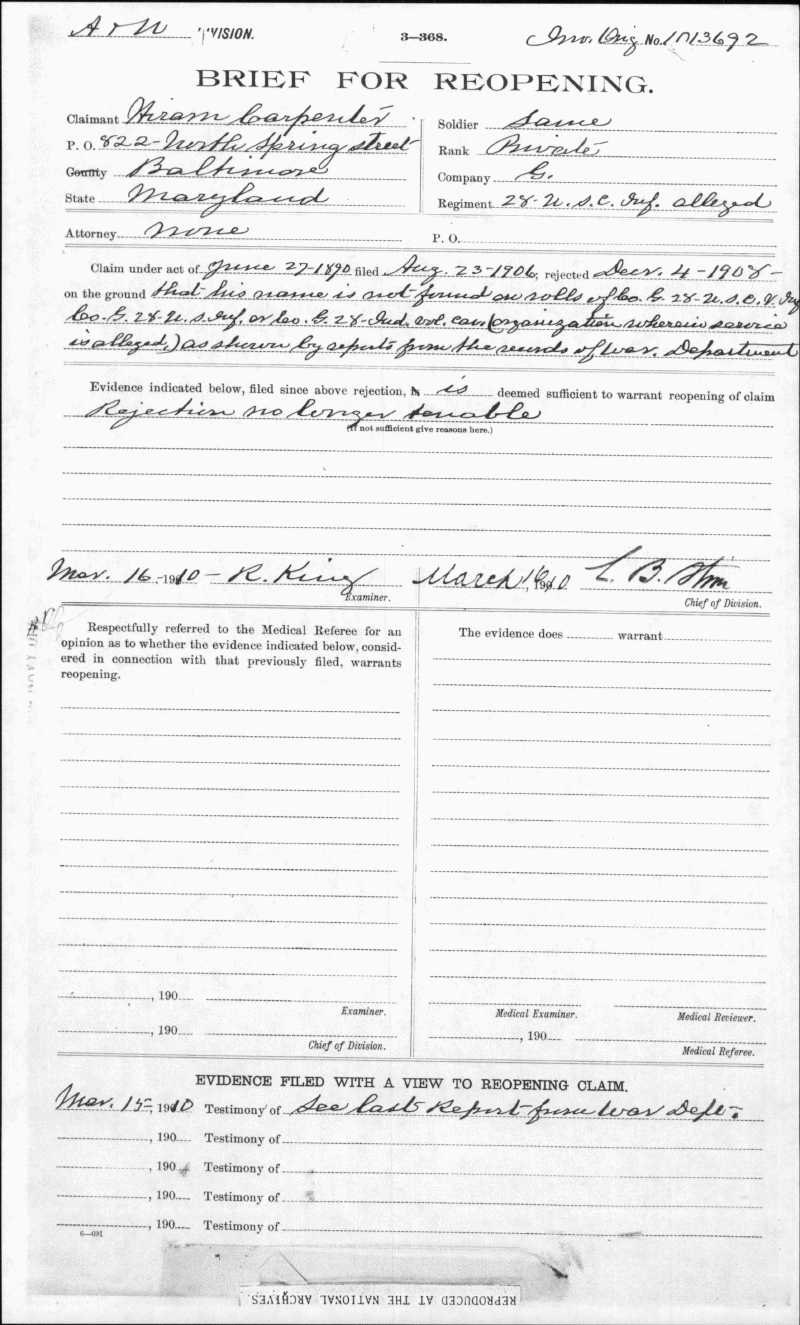 A & N DIVISION. 3—368. Inv. Orig No. 1013692
BRIEF FOR REOPENING.
Claimant Hiram Carpenter
P. O. 822 North Spring street
County Baltimore
State Maryland
Attorney none P. O.
Soldier Same
Rank Private
Company G.
Regiment 28- U. S. C. Inf. alleged
Claim under act of June 27-1890 filed Aug. 23-1906; rejected Decr. 4-1908-
on the ground that his name is not found on rolls of Co. G. 28- U. S. C. V. Inf
Co. G. 28 U. S. Inf. or Co. G. 28- Ind. vol. (organization wherein service
is alleged,) as shown by reports from the records of War. Department
Evidence indicated below, filed since above rejection, is is deemed sufficient to warrant reopening of claim
Rejection no longer tenable
(If not sufficient give reasons here.)
Mar. 16-1910- R. King March 16, 1910 C. B.
Examiner. Chief of Division.
Respectfully referred to the Medical Referee for an
opinion as to whether the evidence indicated below, consid-
ered in connection with that previously filed, warrants
reopening.
The evidence does warrant
, 190
Examiner.
, 190
Chief of Division.
Medical Examiner. Medical Reviewer.
, 190
Medical Referee.
EVIDENCE FILED WITH A VIEW TO REOPENING CLAIM.
Mar. 15-, 1910 Testimony of See last Report from War Dept.
, 190 Testimony of
, 190 Testimony of
, 190 Testimony of
, 190 Testimony of
6—691
REPRODUCED AT THE NATIONAL ARCHIVES